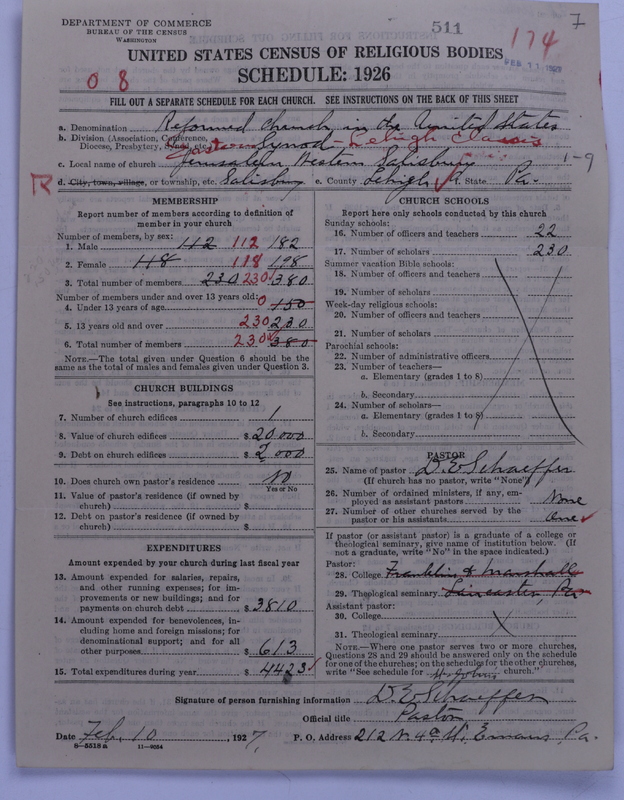 DEPARTMENT OF COMMERCE
BUREAU OF THE CENSUS
WASHINGTON
511
7
174
FEB 11 1927
UNITED STATES CENSUS OF RELIGIOUS BODIES
SCHEDULE: 1926
0 8
FILL OUT A SEPARATE SCHEDULE FOR EACH CHURCH. SEE INSTRUCTIONS ON THE BACK OF THIS SHEET
a. Denomination Reformed Church in the United States
b. Division (Association, Conference, Diocese, Presbytery, Synod, etc.) Eastern Synod - Lehigh Classis
c. Local name of church Jerusalem Western Salisbury
1-9
d. City, town, village, or township, etc. Salisbury e. County Lehigh f. State Pa.
MEMBERSHIP
Report number of members according to definition of
member in your church
Number of members, by sex:
1. Male 112 112 182
2. Female 118 118 198
3. Total number of members 230 230 380
Number of members under and over 13 years old:
4. Under 13 years of age 0 150
5. 13 years old and over 230 230
6. Total number of members 230 380
NOTE.—The total given under Question 6 should be the
same as the total of males and females given under Question 3.
CHURCH BUILDINGS
See instructions, paragraphs 10 to 12
7. Number of church edifices 1
8. Value of church edifices $ 20 000
9. Debt on church edifices $ 2 000
10. Does church own pastor's residence No
Yes or No
11. Value of pastor's residence (if owned by
church) $
12. Debt on pastor's residence (if owned by
church) $
EXPENDITURES
Amount expended by your church during last fiscal year
13. Amount expended for salaries, repairs,
and other running expenses; for im-
provements or new buildings; and for
payments on church debt $ 3810
14. Amount expended for benevolences, in-
cluding home and foreign missions; for
denominational support; and for all
other purposes $ 613
15. Total expenditures during year $ 4423
CHURCH SCHOOLS
Report here only schools conducted by this church
Sunday schools:
16. Number of officers and teachers 22
17. Number of scholars 230
Summer vacation Bible schools:
18. Number of officers and teachers
19. Number of scholars
Week-day religious schools:
20. Number of officers and teachers
21. Number of scholars
Parochial schools:
22. Number of administrative officers
23. Number of teachers—
a. Elementary (grades 1 to 8)
b. Secondary
24. Number of scholars—
a. Elementary (grades 1 to 8)
b. Secondary
PASTOR
25. Name of pastor D. E. Schaeffer
(If church has no pastor, write "None")
26. Number of ordained ministers, if any, em-
ployed as assistant pastors None
27. Number of other churches served by the
pastor or his assistants One
If pastor (or assistant pastor) is a graduate of a college or
theological seminary, give name of institution below. (If
not a graduate, write "No" in the space indicated.)
Pastor:
28. College Franklin & Marshall
29. Theological seminary Lancaster, Pa
Assistant pastor:
30. College
31. Theological seminary
NOTE.—Where one pastor serves two or more churches,
Questions 28 and 29 should be answered only on the schedule
for one of the churches; on the schedule for the other churches,
write "See schedule for St. John's church."
Signature of person furnishing information D. E. Schaeffer
Official title Pastor
Date Feb. 10, 1927, P. O. Address 212 N. 4th St. Emaus, Pa.
8—5518 a 11—9054